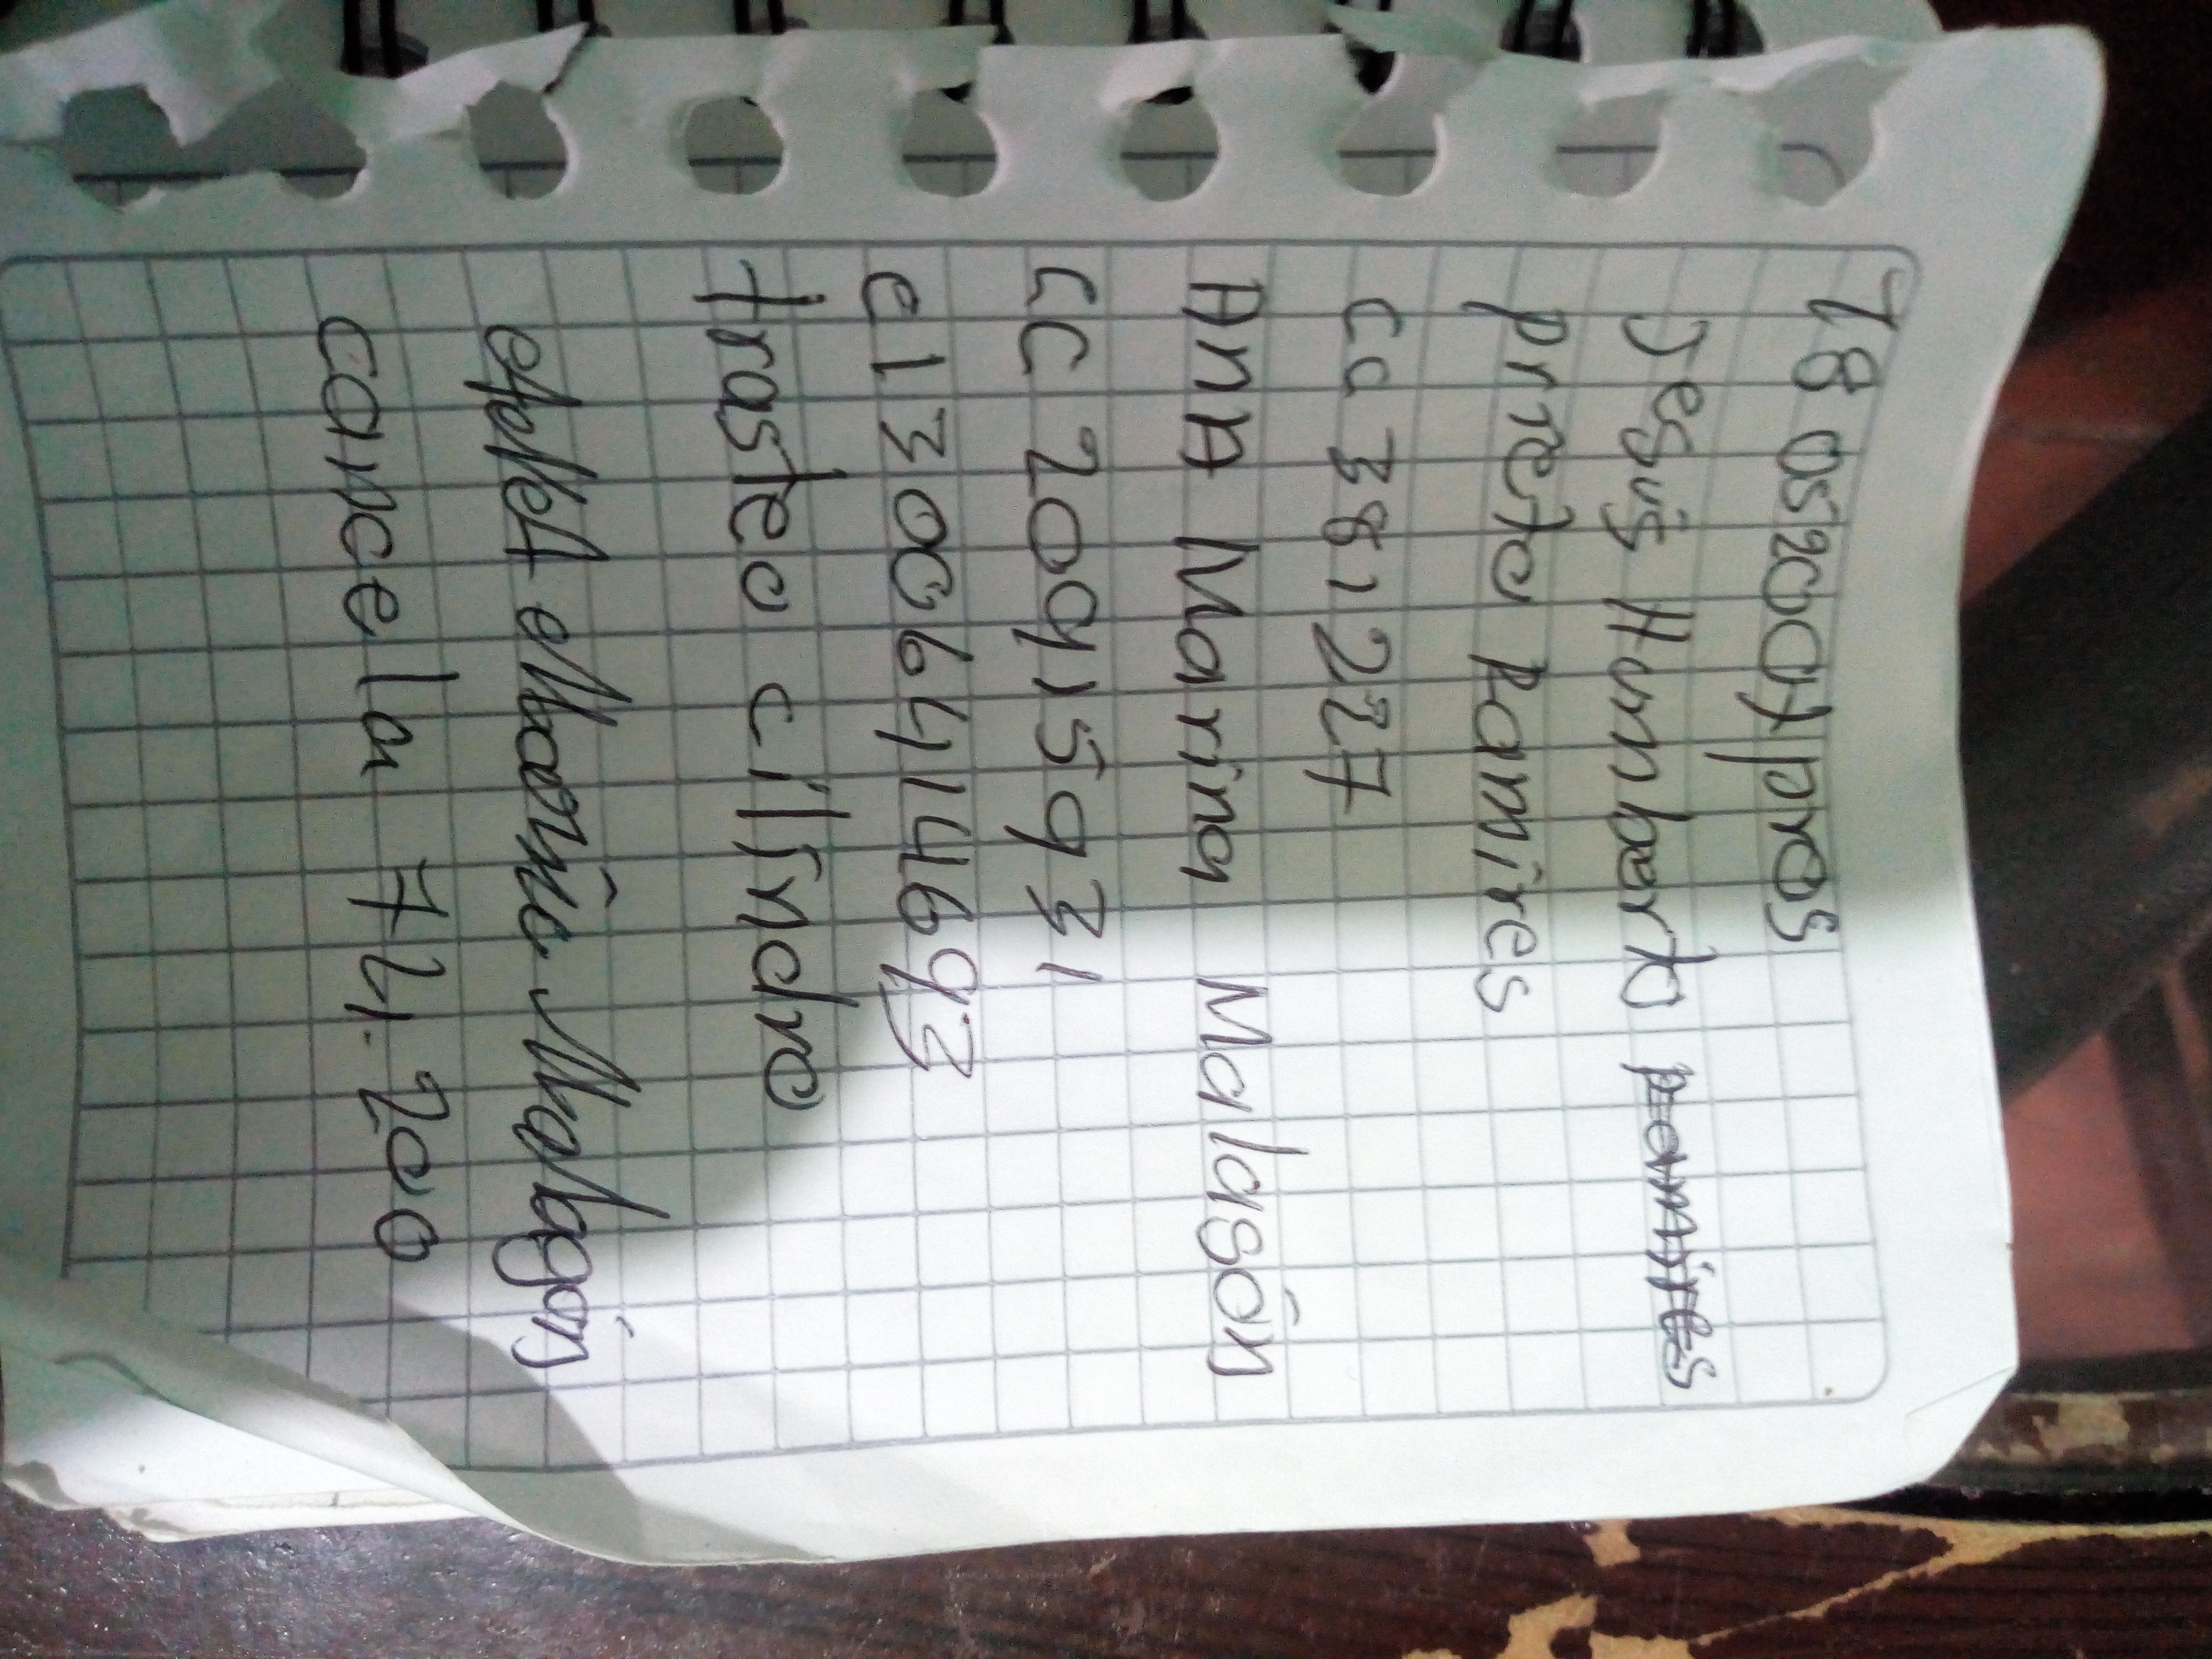 18 os 20cuypros
Jesús Humberto
prieto Ramires
cc 381227
AnA Marina Malasón
cc 20415931
cl 3006414693
trasteo cilindro
Malagón
cancela 74.200